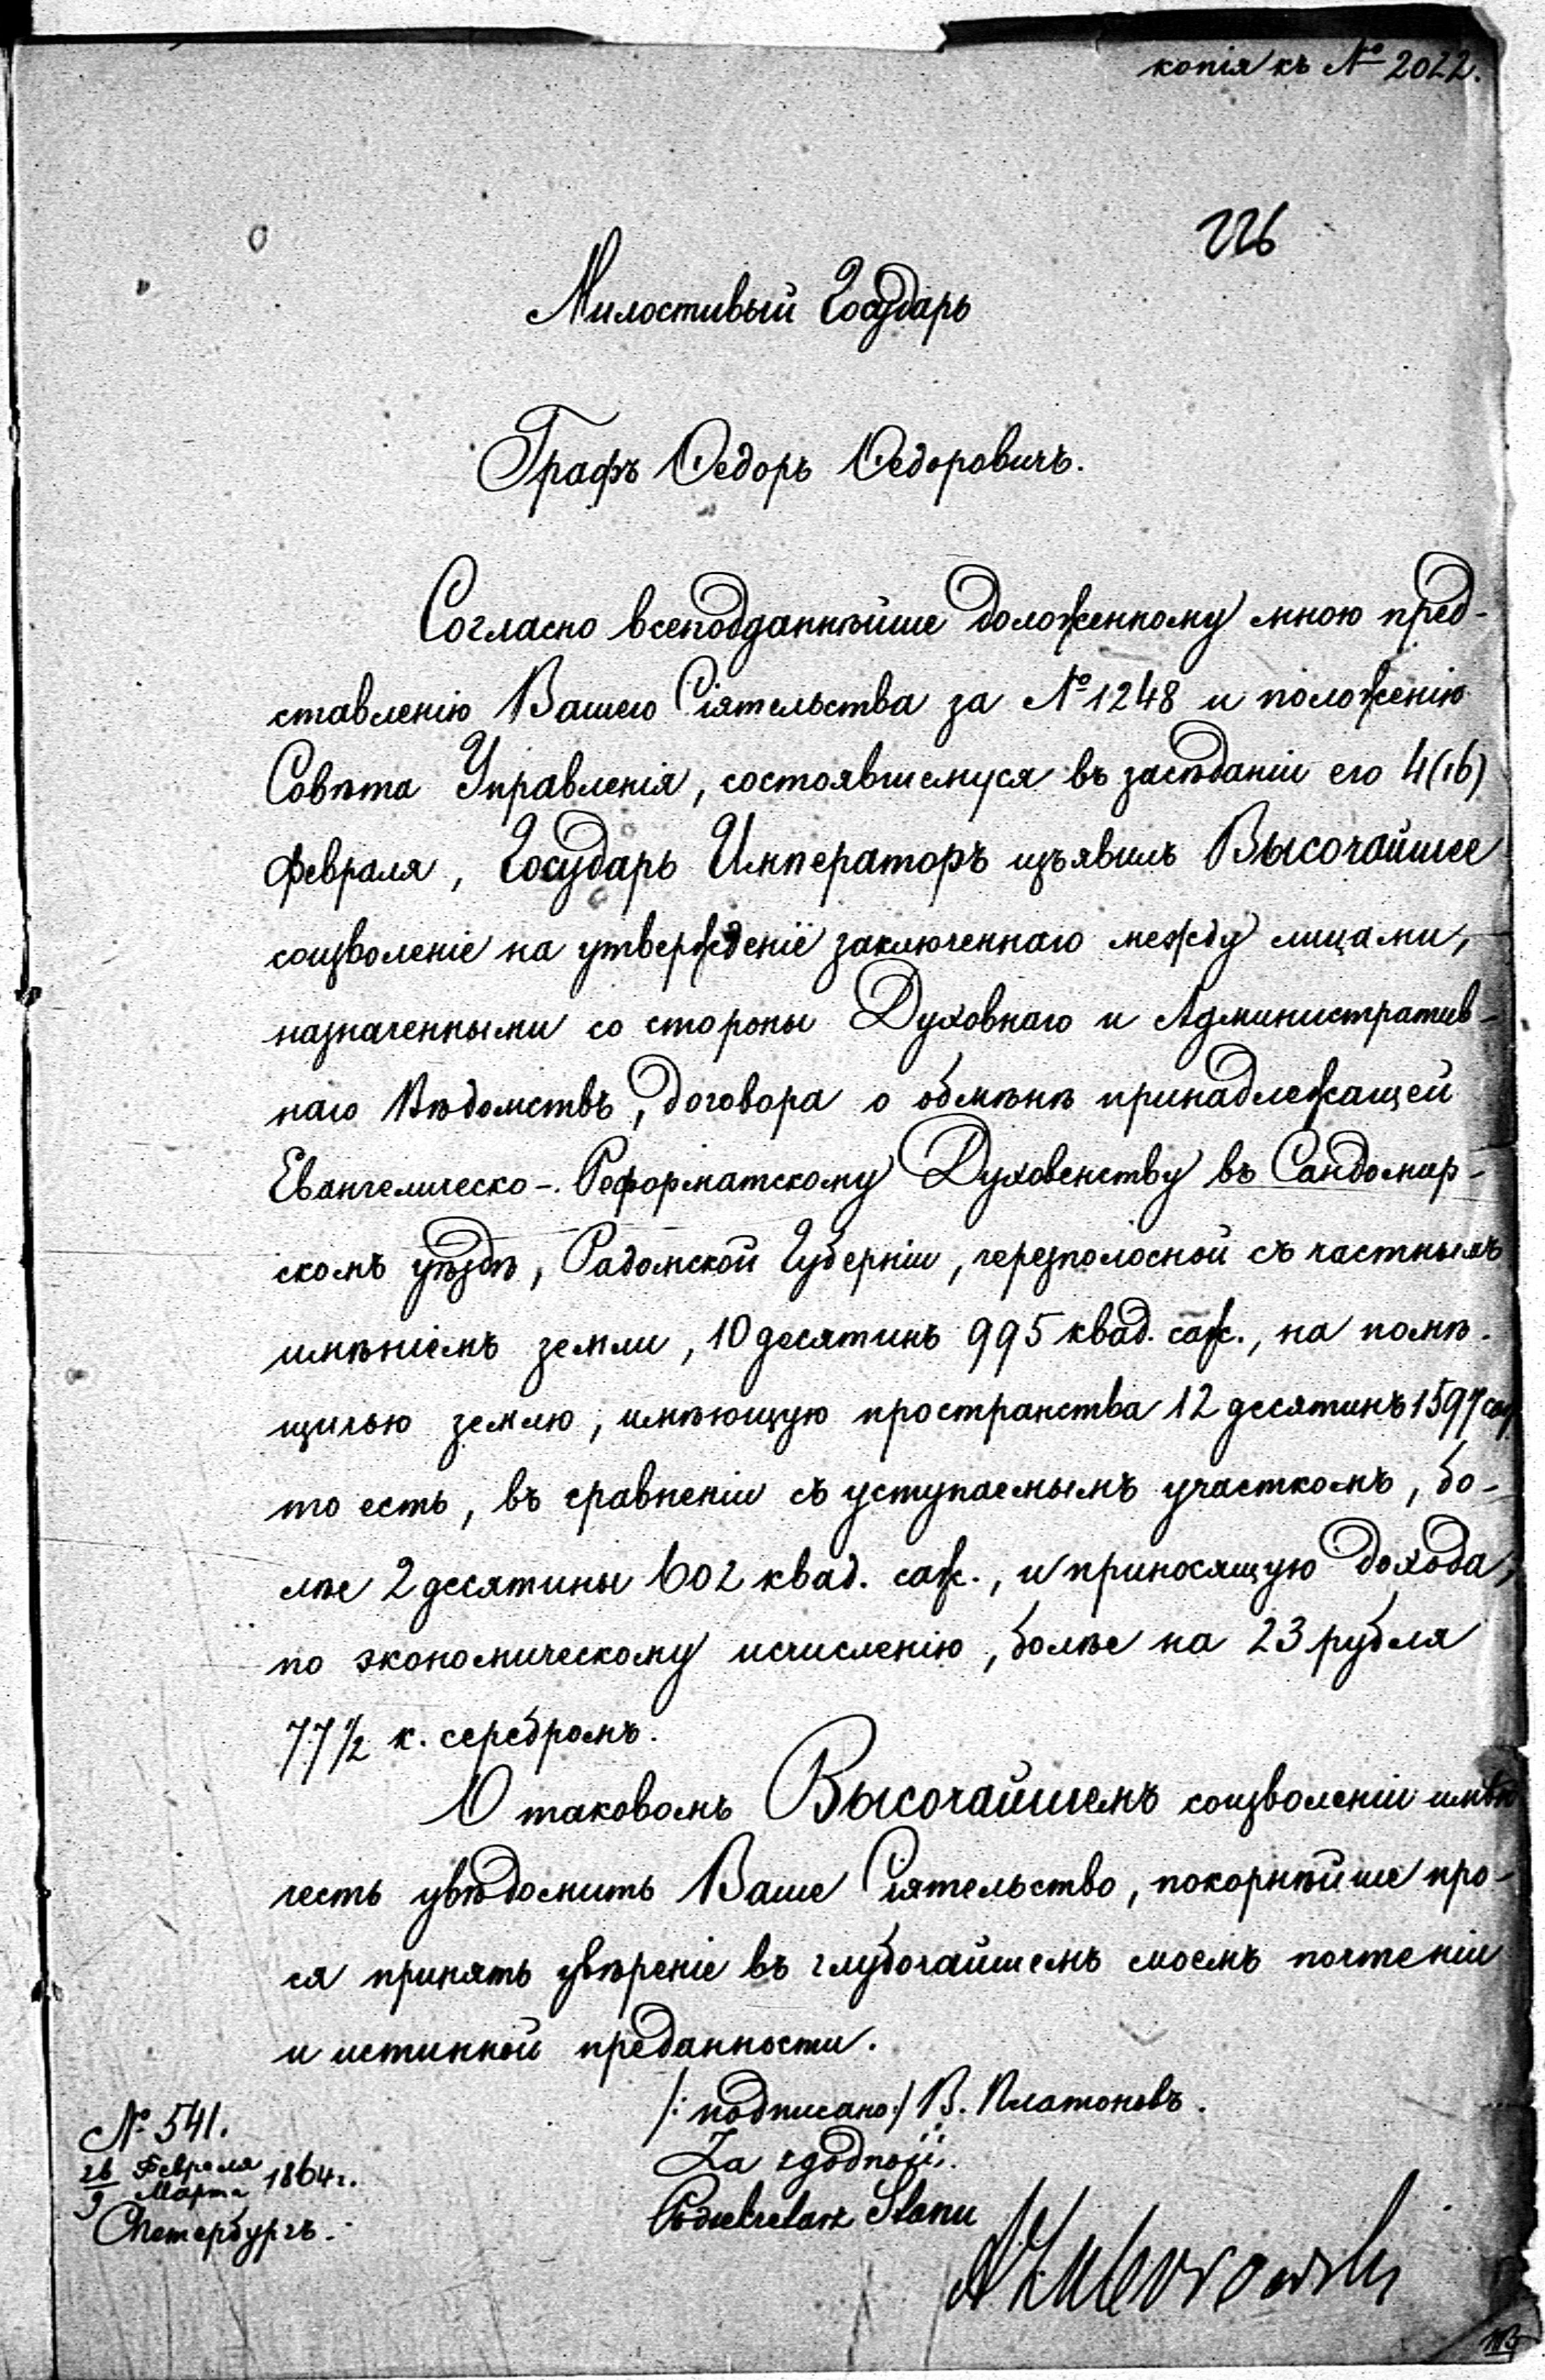 копія къ № 2022.
226
Милостивый Государь
Графъ Ѳедоръ Ѳедоровичъ.
Согласно всеподданнѣйше доложенному мною пред-
ставленію Вашего Сіятельства за № 1248 и положенію
Совѣта Управленія, состоявшемуся въ засѣданіи его 4(16)
Февраля, Государь Императоръ изъявилъ Высочайшее
соизволеніе на утвержденіе заключеннаго между лицами,
назначенными со стороны Духовнаго и Административ-
наго Вѣдомствъ, договора о обмѣнѣ принадлежащей
Евангелическо-Реформатскому Духовенству въ Сандомир-
скомъ уѣздѣ, Радомской Губерніи, черезполосной съ частнымъ
имѣніемъ земли, 10 десятинъ 995 квад. саж., на помѣ-
щичью землю, имѣющую пространства 12 десятинъ 1597 саж.
то есть, въ сравненіи съ уступаемымъ участкомъ, бо-
лѣе 2 десятины 602 квад. саж., и приносящую дохода,
по экономическому исчисленію, болѣе на 23 рубля
77 1/2 к. серебромъ.
О таковомъ Высочайшемъ соизволеніи имѣю
честь увѣдомить Ваше Сіятельство, покорнѣйше про-
ся принять увѣреніе въ глубочайшемъ моемъ почтеніи
и истинной преданности.
/: подписано :/ В. Платоновъ.
Za zgodność
Podsekretarz Stanu
№ 541.
26 Февраля
9 Марта 1864 г.
СПетербургъ.